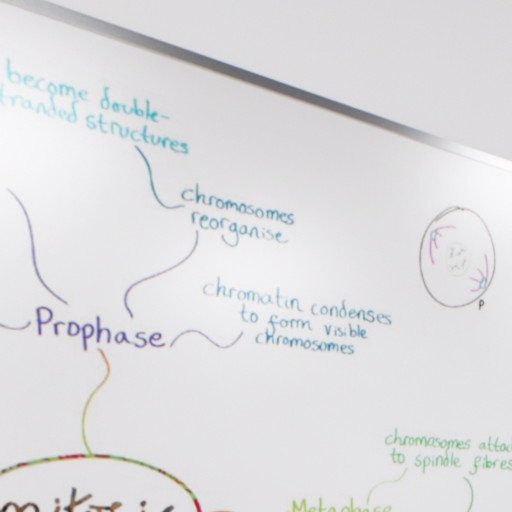 become double-
stranded structures
chromosomes
reorganise
chromatin condenses
to form visible
chromosomes
Prophase
P
chromosomes attac
to spindle fibres
Metaphase
mitosis